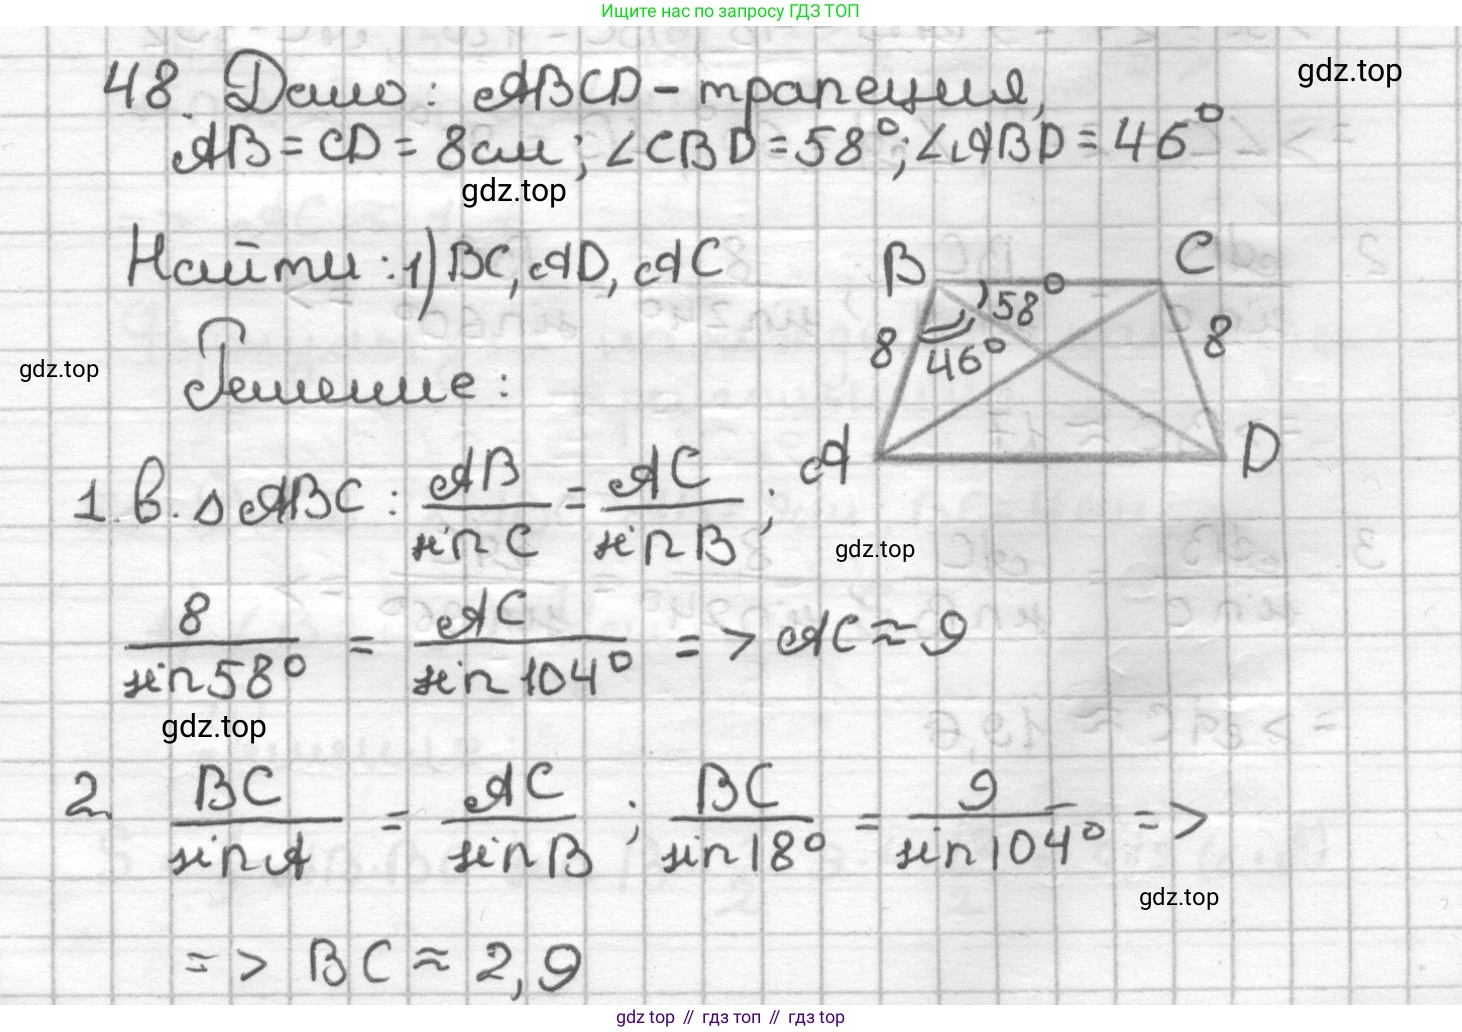 Ищите нас по запросу ГДЗ ТОП
48. Дано: ABCD - трапеция,
gdz.top
AB = CD = 8см; ∠CBD = 58°; ∠ABD = 46°
gdz.top
Найти: 1) BC, AD, AC
B C
58°
8 46° 8
gdz.top
Решение:
A D
1. В △ ABC: AB/sin C = AC/sin B;
gdz.top
8/sin 58° = AC/sin 104° => AC ≈ 9
gdz.top
2. BC/sin A = AC/sin B; BC/sin 18° = 9/sin 104° =>
gdz.top
=> BC ≈ 2,9
gdz top // гдз топ // гдз top